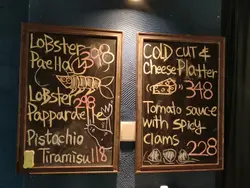 LoBSter 398
Paella
LoBSter 298
Pappardelle
Pistachio
Tiramisu 118
COLD CUT &
cheese Platter
348
Tomato sauce
with spicy
clams 228